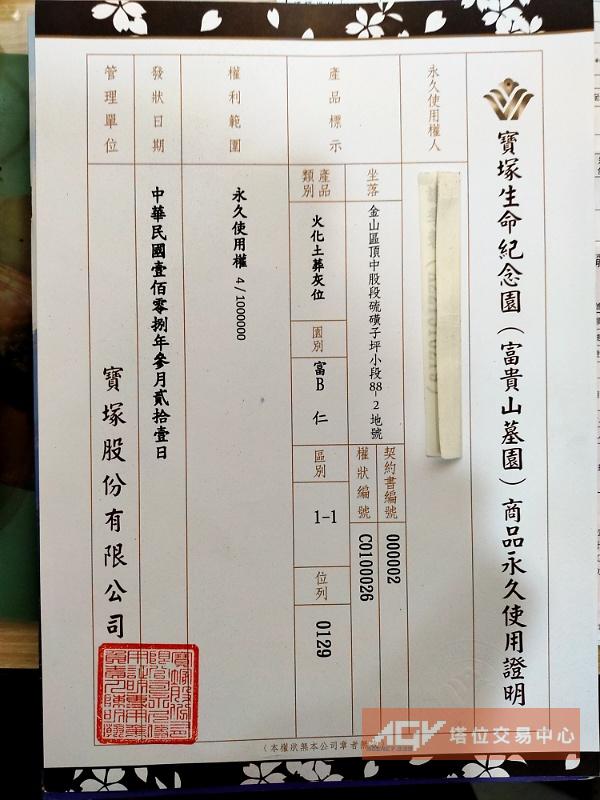 寶塚生命紀念園（富貴山墓園）商品永久使用證明
永久使用權人
產品標示
坐落
金山區頂中股段硫磺子坪小段88-2地號
契約書編號
000002
權狀編號
C0100026
產品類別
火化土葬灰位
園別
富B 仁
區別
1-1
位列
0129
權利範圍
永久使用權 4/1000000
發狀日期
中華民國壹佰零捌年參月貳拾壹日
管理單位
寶塚股份有限公司
（本權狀無本公司章者無
AGV 塔位交易中心